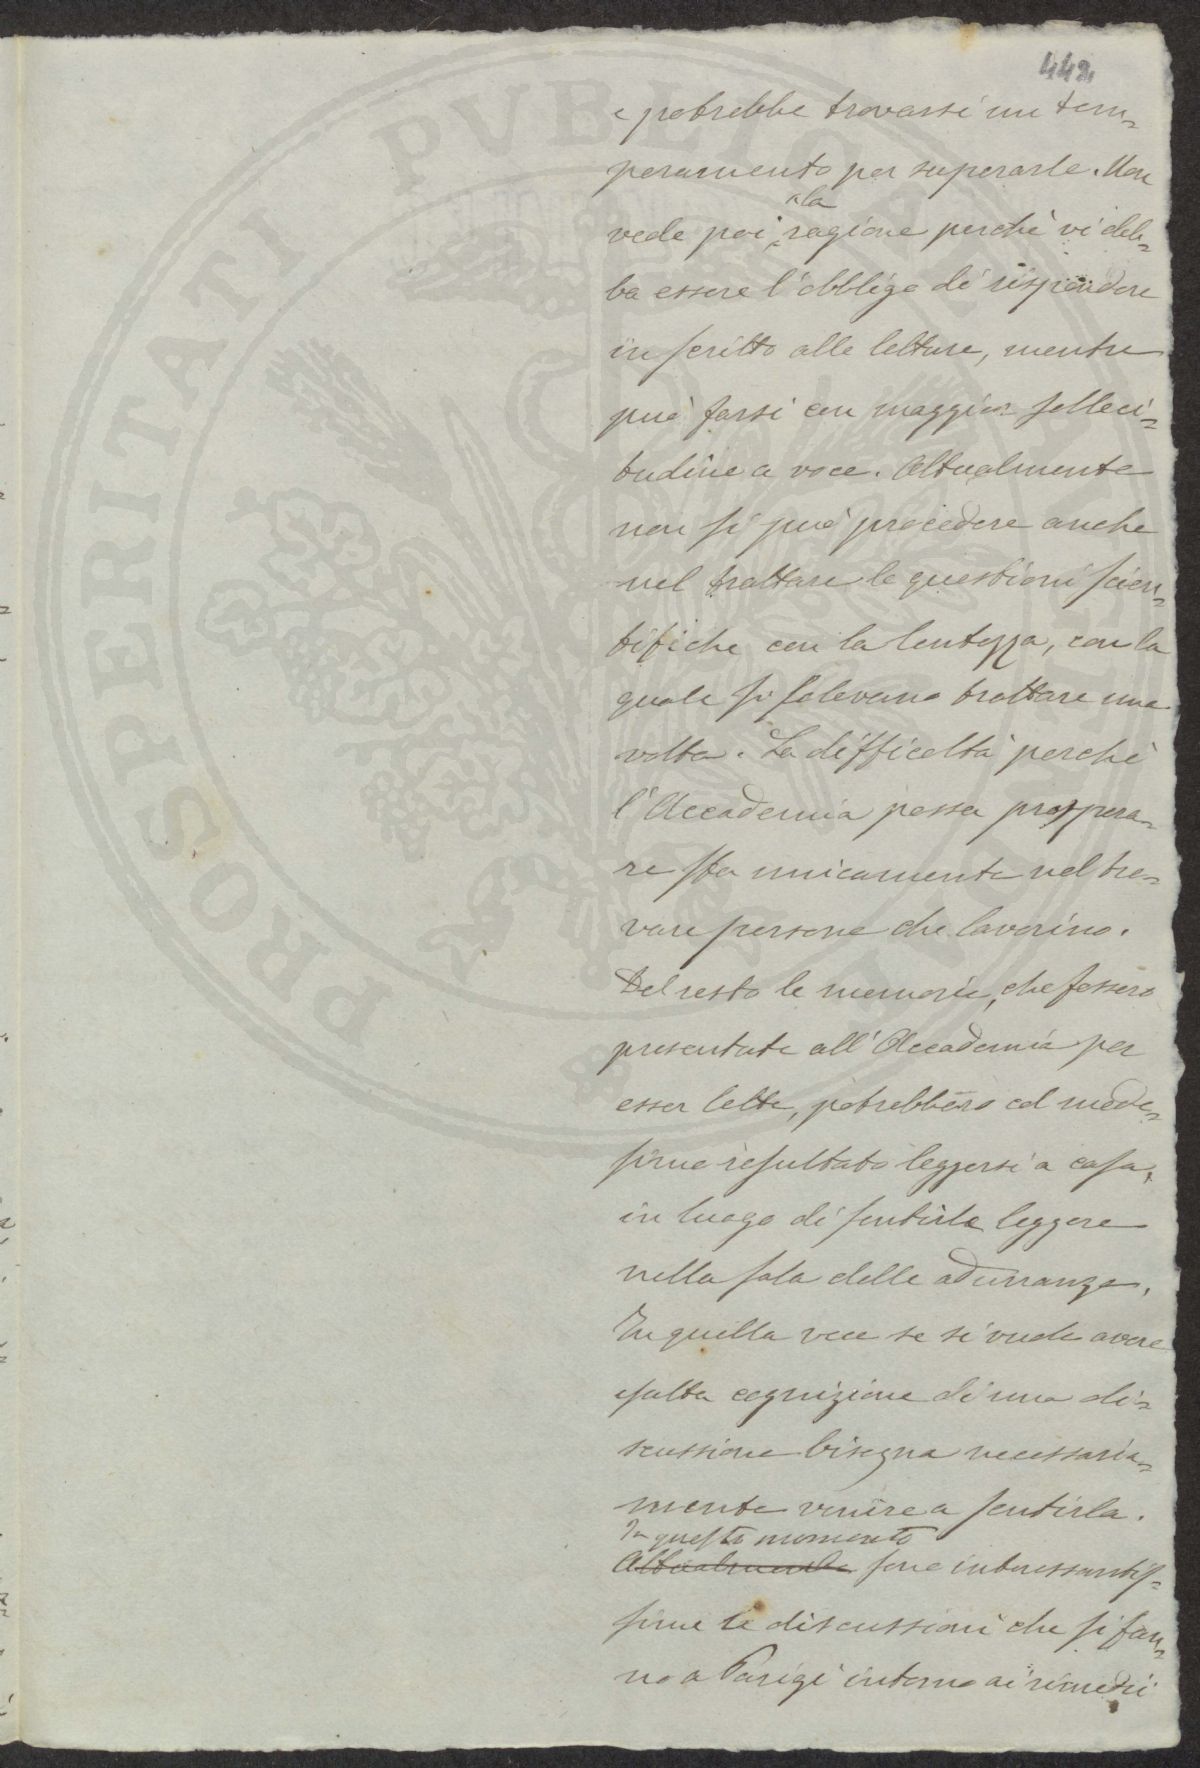 442
e potrebbe trovarsi un tem=
peramento per superarle. Non
vede poi la ragione perchè vi deb=
ba essere l'obbligo di rispondere
in scritto alle letture, mentre
può farsi con maggior solleci=
tudine a voce. Attualmente
non si può procedere anche
nel trattare le questioni scien=
tifiche con la lentezza, con la
quale si solevano trattare una
volta. La difficoltà perchè
l'Accademia possa prospera=
re sta unicamente nel tro=
vare persone che lavorino.
Del resto le memorie, che fossero
presentate all'Accademia per
esser lette, potrebbero col mede=
simo resultato leggersi a casa,
in luogo di sentirle leggere
nella sala delle adunanze.
In quella vece se si vuole avere
esatta cognizione di una di=
scussione bisogna necessaria=
mente venire a sentirla.
In questo momento
Attualmente sono interessantis=
sime le discussioni che si fan=
no a Parigi intorno ai rimedi
PROSPERITATI PVBLICAE